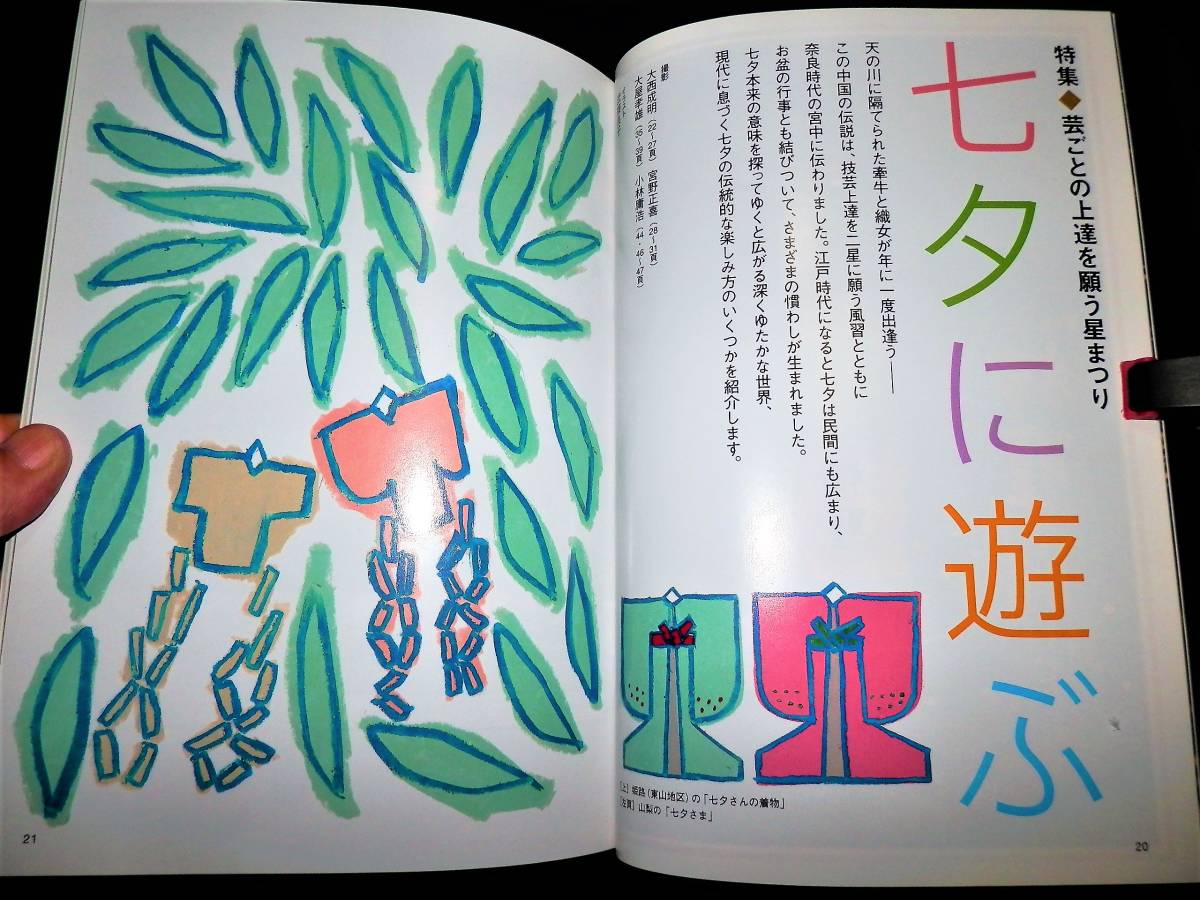 特集◆芸ごとの上達を願う星まつり
七夕に遊ぶ
天の川に隔てられた牽牛と織女が年に一度出逢う――
この中国の伝説は、技芸上達を二星に願う風習とともに
奈良時代の宮中に伝わりました。江戸時代になると七夕は民間にも広まり、
お盆の行事とも結びついて、さまざまの慣わしが生まれました。
七夕本来の意味を探ってゆくと広がる深くゆたかな世界、
現代に息づく七夕の伝統的な楽しみ方のいくつかを紹介します。
撮影
大西成明(22~27頁) 宮野正喜(28~31頁)
大屋孝雄(35~39頁) 小林庸浩(44・46~47頁)
イラスト
[上]姫路(東山地区)の「七夕さんの着物」
[左頁]山梨の「七夕さま」
20
21